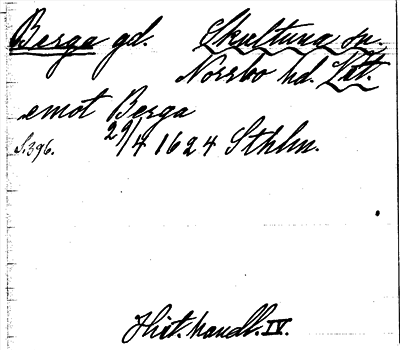 Berga gd. Skultuna sn.
Norrbo hd. Vät.
emot Berga
S. 396. 29/4 1624 Sthlm.
Hist. handl. IV.